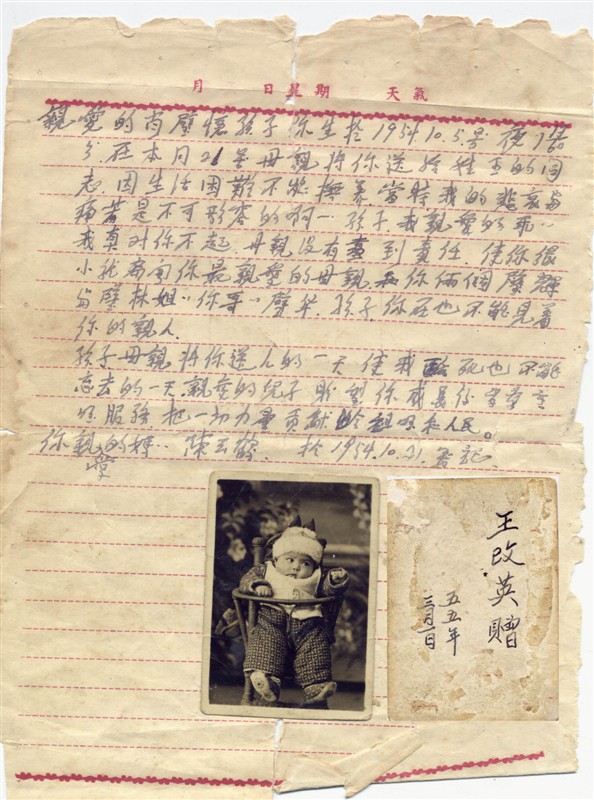 月 日 星期 天氣
親愛的肖壁懷孩子你生於1954.10.5号夜1點
分在本月21号母親將你送給姓王的同
志因生活困難不能撫養當時我的悲哀与
痛苦是不可形容的啊… 孩子我親愛的乖…
我真对你不起.母親没有盡到責任.使你很
小就离開你最親愛的母親和你倆個壁輝
与壁林姐…你哥…壁华.孩子你在也不能見着
你的親人.
孩子母親將你送人的一天使我 死也不能
忘去的一天親愛的兒子盼望你成長
服務把一切力量贡献给祖国和人民。
你親愛的媽… 陳玉 於1954.10.21.
王改英贈
五五年
三月一日